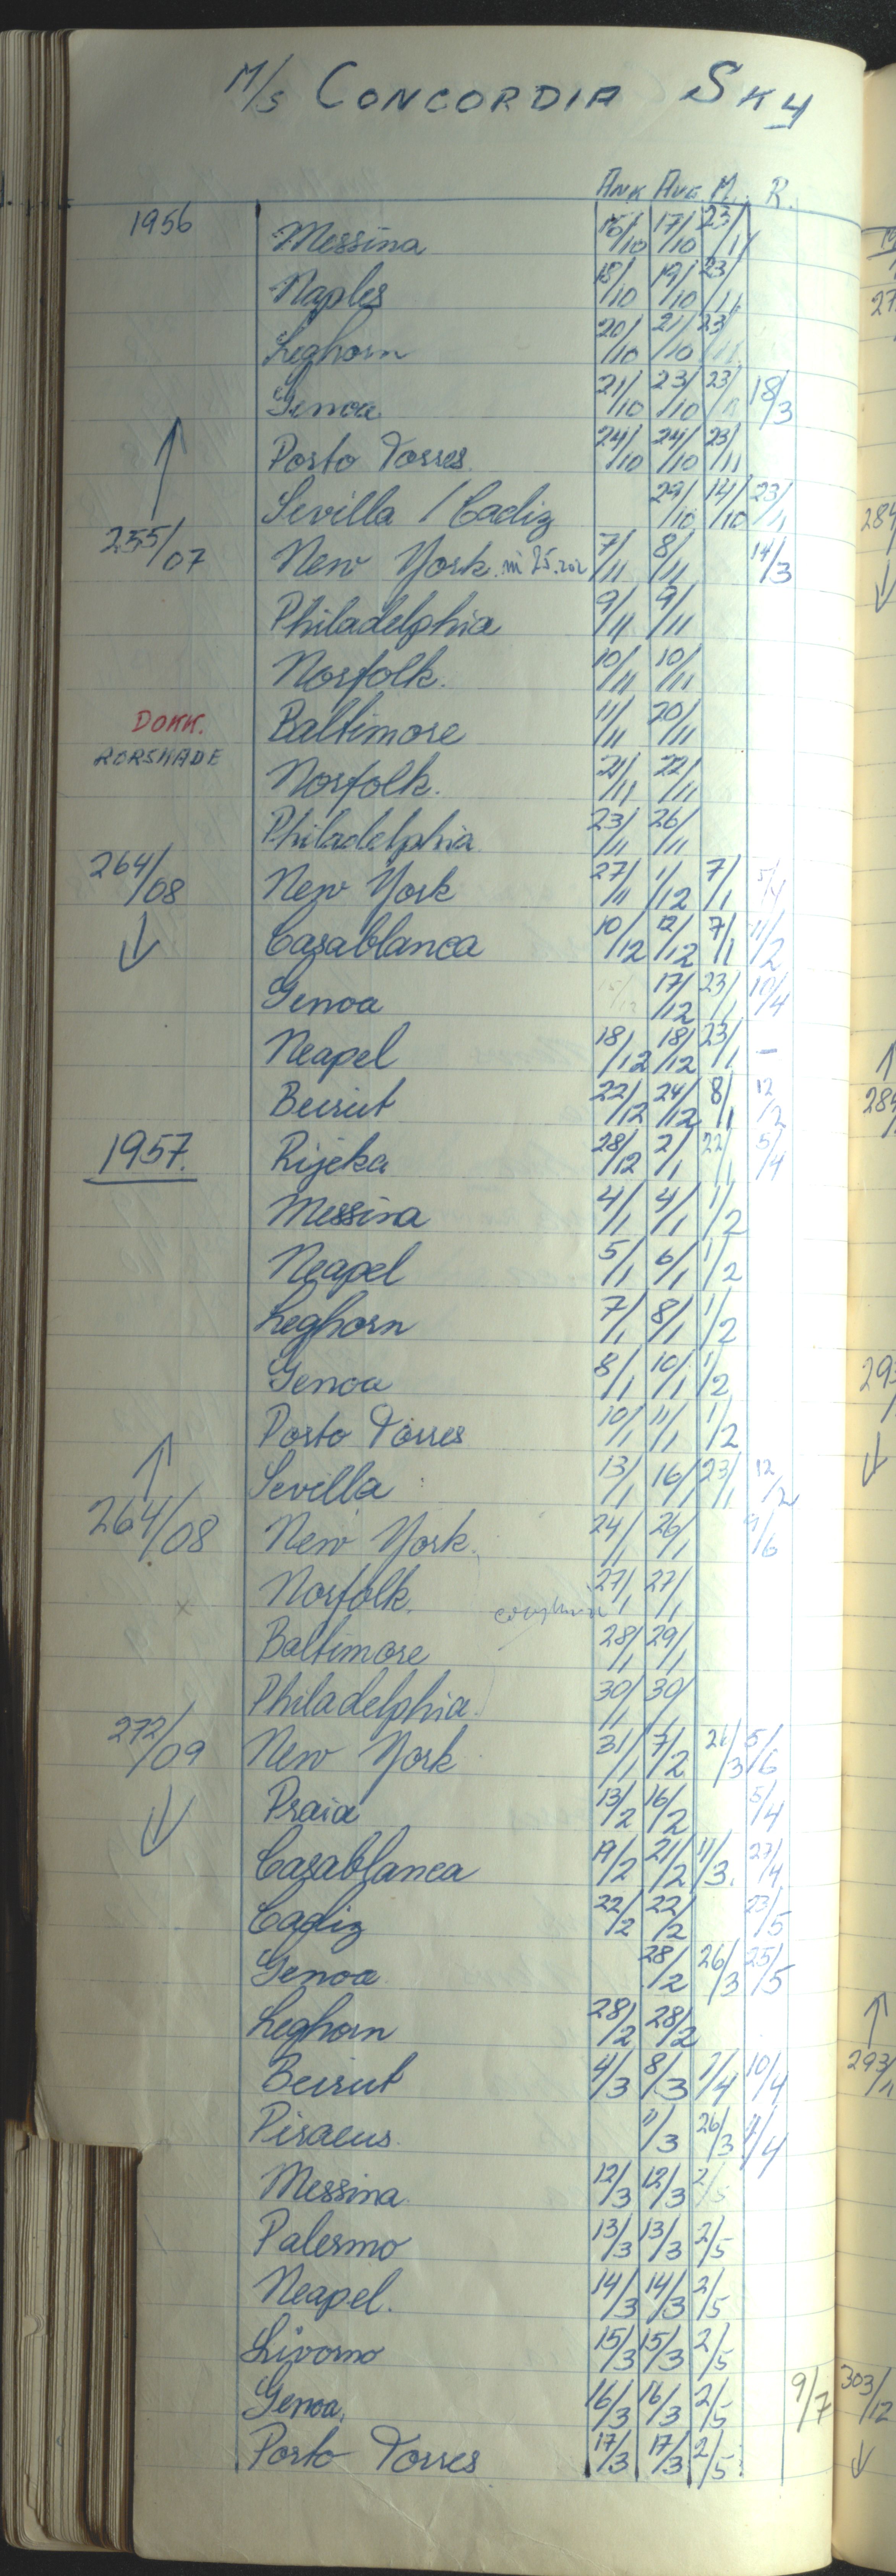 M/S CONCORDIA SKY
ANK AVG M. R.
1956 Messina 16/10 17/10 23/11
Naples 18/10 19/10 23/11
Leghorn 20/10 21/10 23/11
Genoa 21/10 23/10 23/11 18/3
Porto Torres 24/10 24/10 23/11
Sevilla / Cadiz 29/10 14/10 23/1
255/07 New York 7/11 8/11 14/3
Philadelphia 9/11 9/11
Norfolk. 10/11 10/11
DOKK. Baltimore 11/11 20/11
RORSKADE
Norfolk. 21/11 22/11
Philadelphia 23/11 26/11
264/08 New York 27/11 1/12 7/1 5/4
Casablanca 10/12 12/12 7/1 11/2
Genoa 17/12 23/1 10/4
Neapel 18/12 18/12 23/1 -
Beirut 22/12 24/12 8/1 12/2
1957. Rijeka 28/12 2/1 22/1 5/4
Messina 4/1 4/1 1/2
Neapel 5/1 6/1 1/2
Leghorn 7/1 8/1 1/2
Genoa 8/1 10/1 1/2
Porto Torres 10/1 11/1 1/2
Sevilla 13/1 16/1 23/1 12/2
264/08 New York. 24/1 26/1 9/6
Norfolk. 27/1 27/1
Baltimore 28/1 29/1
Philadelphia. 30/1 30/1
272/09 New York 31/1 7/2 26/3 5/6
Praia 13/2 16/2 5/4
Casablanca 19/2 21/2 11/3. 27/4
Cadiz 22/2 22/2 23/5
Genoa 28/2 26/3 25/5
Leghorn 28/2 28/2
Beirut 4/3 8/3 1/4 10/4
Piraeus. 11/3 26/3 11/4
Messina 12/3 12/3 2/5
Palermo 13/3 13/3 2/5
Neapel. 14/3 14/3 2/5
Livorno 15/3 15/3 2/5
Genoa. 16/3 16/3 2/5 9/7
Porto Torres 17/3 17/3 2/5
303/12